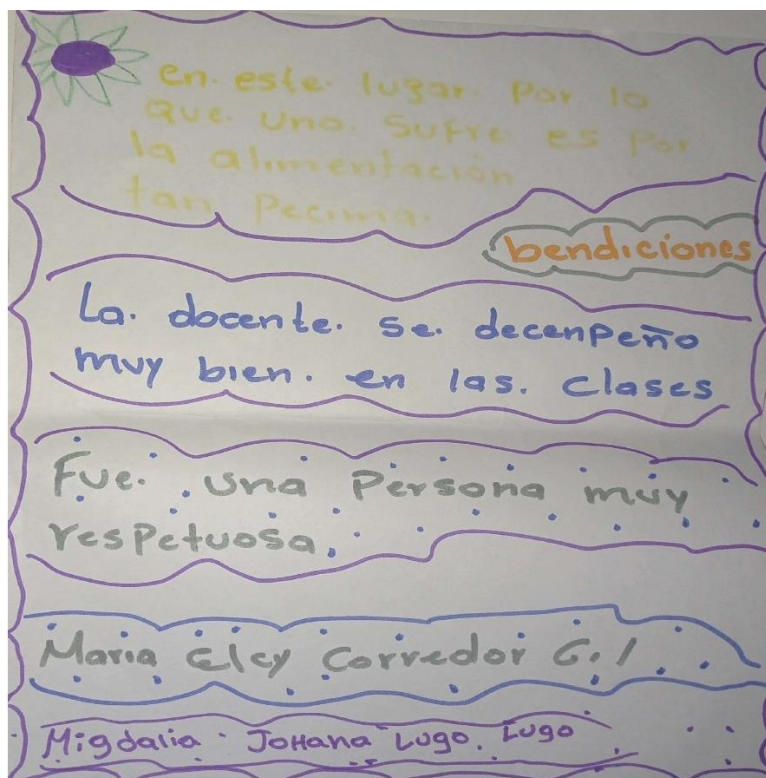 en. este. lugar. por lo
que. uno. sufre es por
la alimentación
tan pecima.
bendiciones
La. docente. se. decenpeño
muy bien. en las. clases
Fue. una Persona muy
respetuosa.
Maria elcy Corredor G.l
Migdalia. JoHana Lugo. Lugo